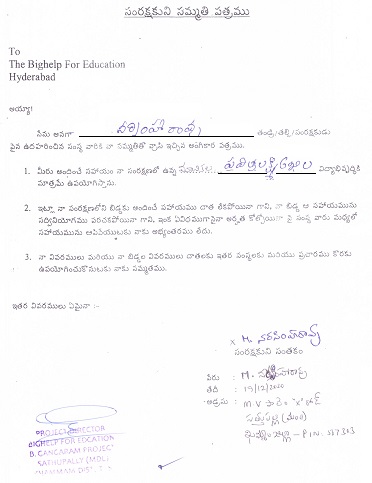 సంరక్షకుని సమ్మతి పత్రము
To
The Bighelp For Education
Hyderabad
అయ్యా!
నేను అనగా నర్సింహారావు తండ్రి/తల్లి/సంరక్షకుడు
పైన ఉదహరించిన సంస్థ వారికి నా సమ్మతితో వ్రాసి ఇచ్చిన అంగీకార పత్రము.
1. మీరు అందించే సహాయం నా సంరక్షణలో ఉన్న విద్యాభివృద్ధికి
మాత్రమే ఉపయోగిస్తాను.
2. ఇట్లూ నా సంరక్షణలోని బిడ్డకు అందించే సహాయము దాత లేకపోయినా గాని, నా బిడ్డ ఆ సహాయమును
సద్వినియోగము పరచకపోయినా గాని, ఇంక ఏవిధముగానైనా అర్హత కోల్పోయినా పై సంస్థ వారు మధ్యలో
సహాయమును ఆపివేయుటకు నాకు అభ్యంతరము లేదు.
3. నా వివరములు మరియు నా బిడ్డల వివరములు దాతలకు ఇతర సంస్థలకు మరియు ప్రచారము కొరకు
ఉపయోగించుకొనుటకు నాకు సమ్మతము.
ఇతర వివరములు ఏమైనా :-
x M. నరసింహారావు
సంరక్షకుని సంతకం
పేరు : M. నరసింహారావు
తేది : 19/12/2010
అడ్రసు : M V
సత్తుపల్లి (మం)
ఖమ్మం జిల్లా - Pin.
PROJECT DIRECTOR
BIGHELP FOR EDCATION
B. GANGARAM PROJECT
SATHUPALLY (MDL)
KHAMMAM DIST